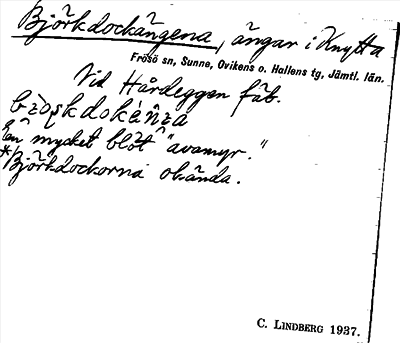 Björkdockängena, ängar i Knytta
Frösö sn, Sunne, Ovikens o. Hallens tg, Jämtl. län.
Vid Hårdeggen fäb.
En mycket blöt "avamyr."
*Björkdockorna okända.
C. LINDBERG 1937.